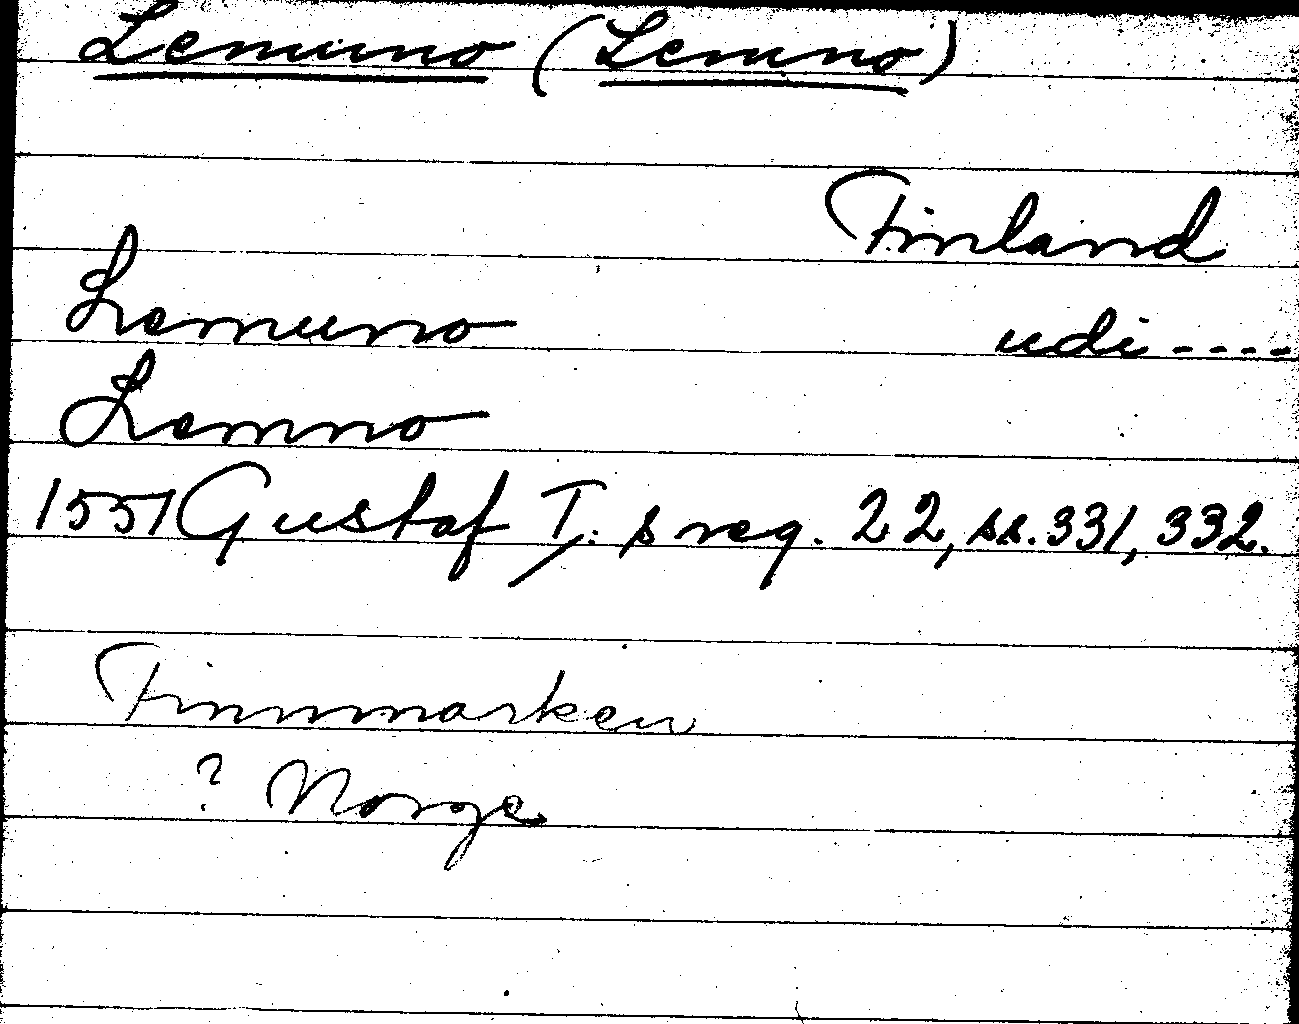 Lemuno (Lemno)
Finland
Lemuno udi ----
Lemno
1551 Gustaf I:s reg. 22, ss. 331, 332.
Finnmarken
? Norge